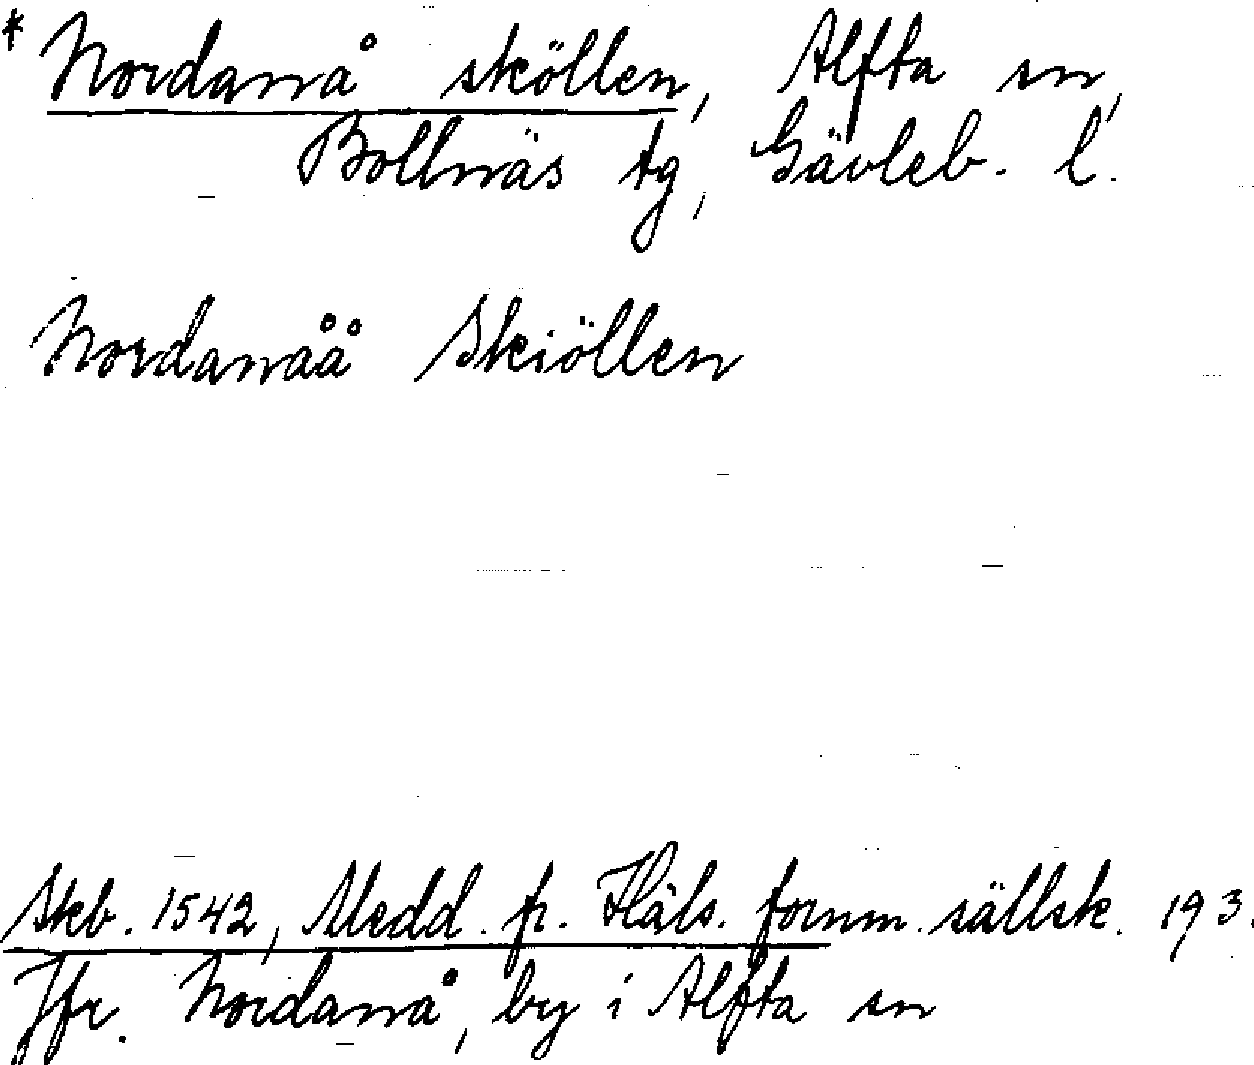 * Nordanå sköllen, Alfta sn,
Bollnäs tg, Gävleb. l.
Nordanåå Skiöllen
Skb. 1542, Medd. fr. Häls. fornm. sällsk. 193.
Jfr. Nordanå, by i Alfta sn